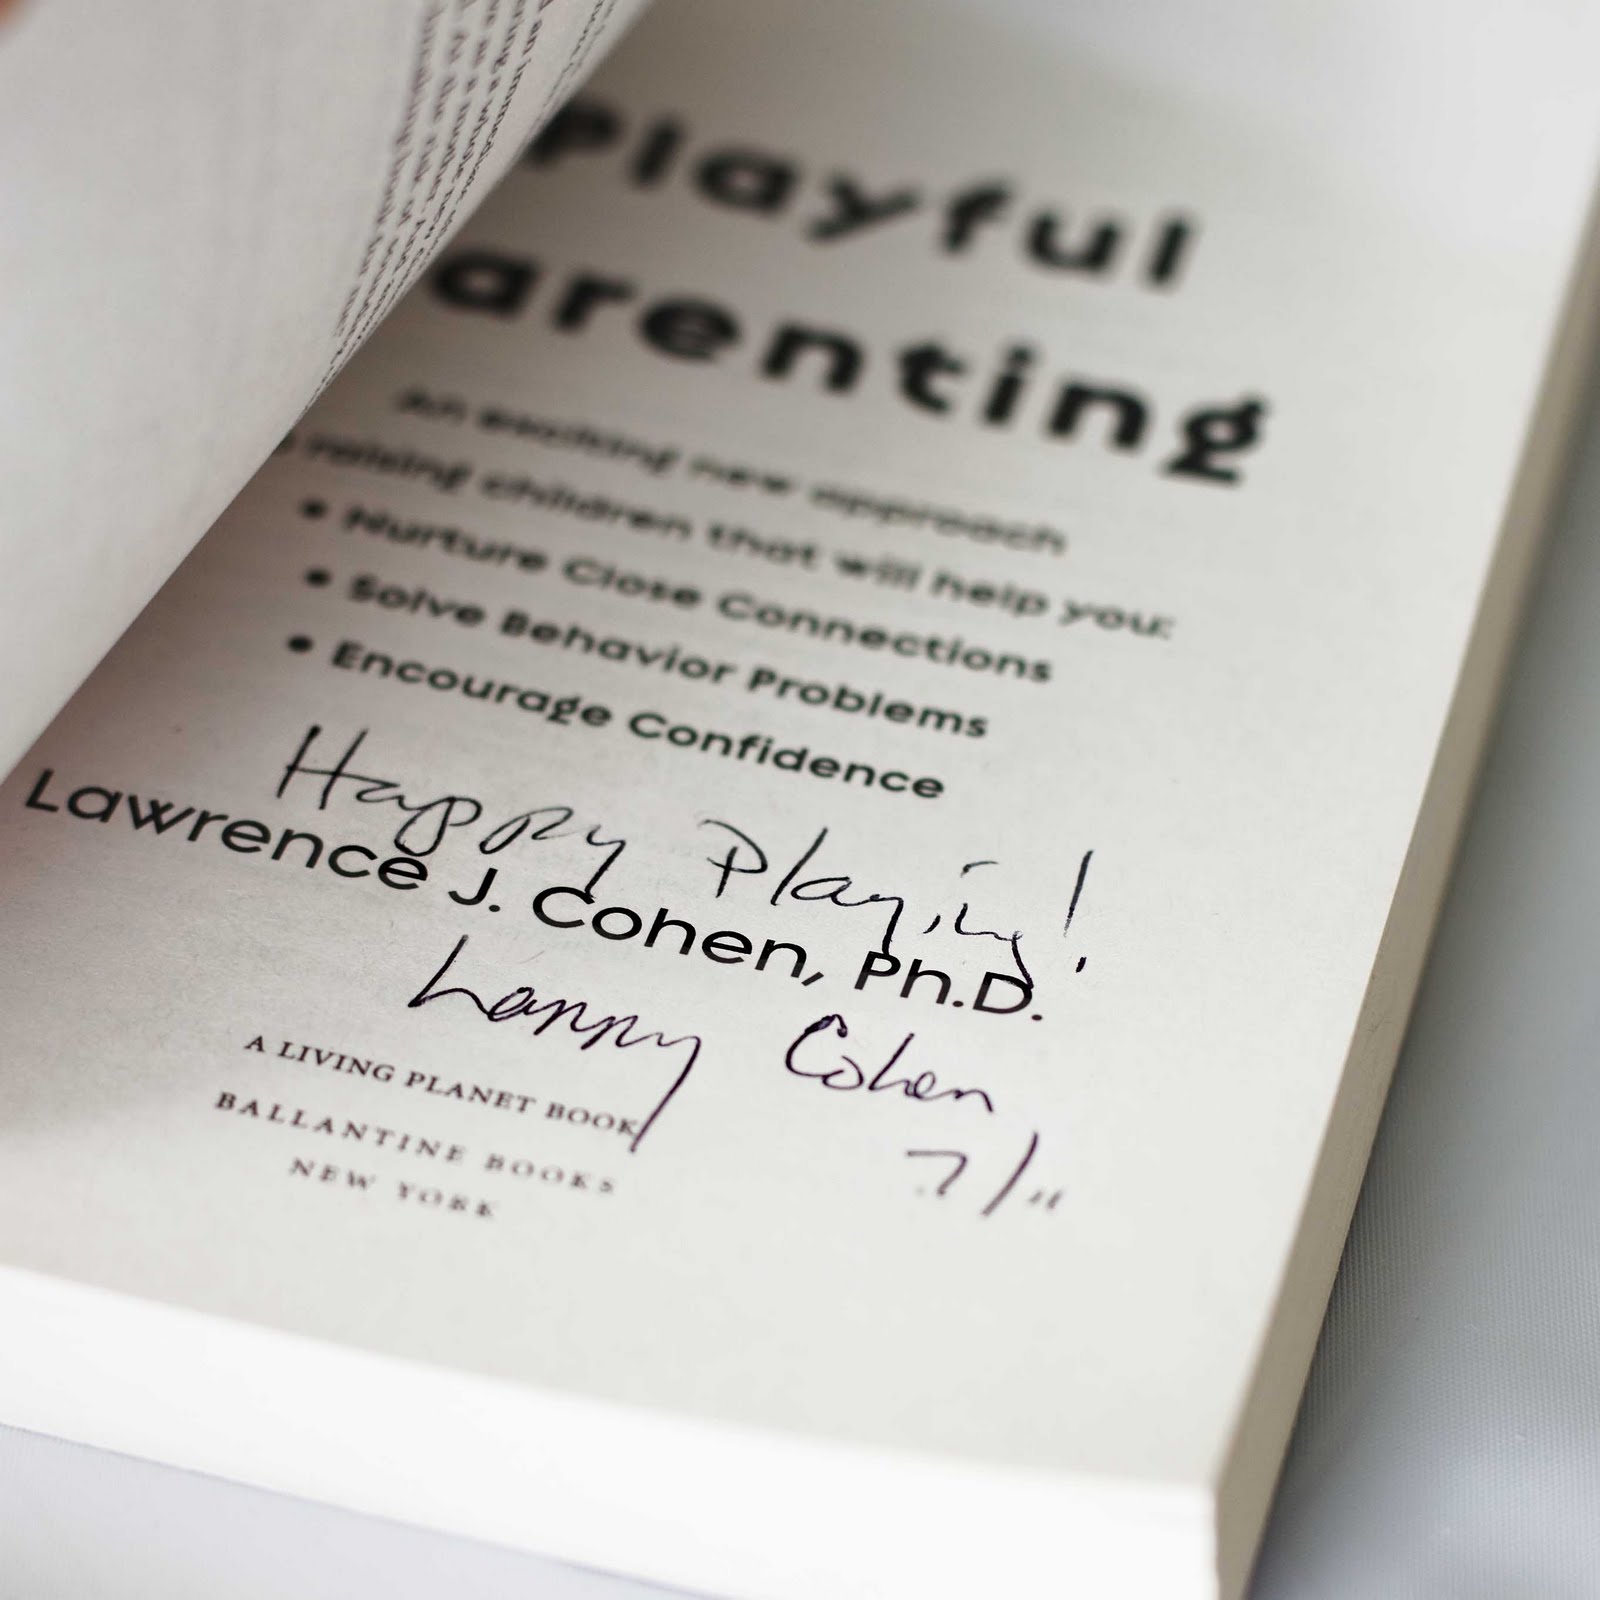 Playful
arenting
An exciting new approach
raising children that will help you:
• Nurture Close Connections
• Solve Behavior Problems
• Encourage Confidence
Happy Playing!
Lawrence J. Cohen, Ph.D.
Larry Cohen
7/11
A LIVING PLANET BOOK
BALLANTINE BOOKS
NEW YORK